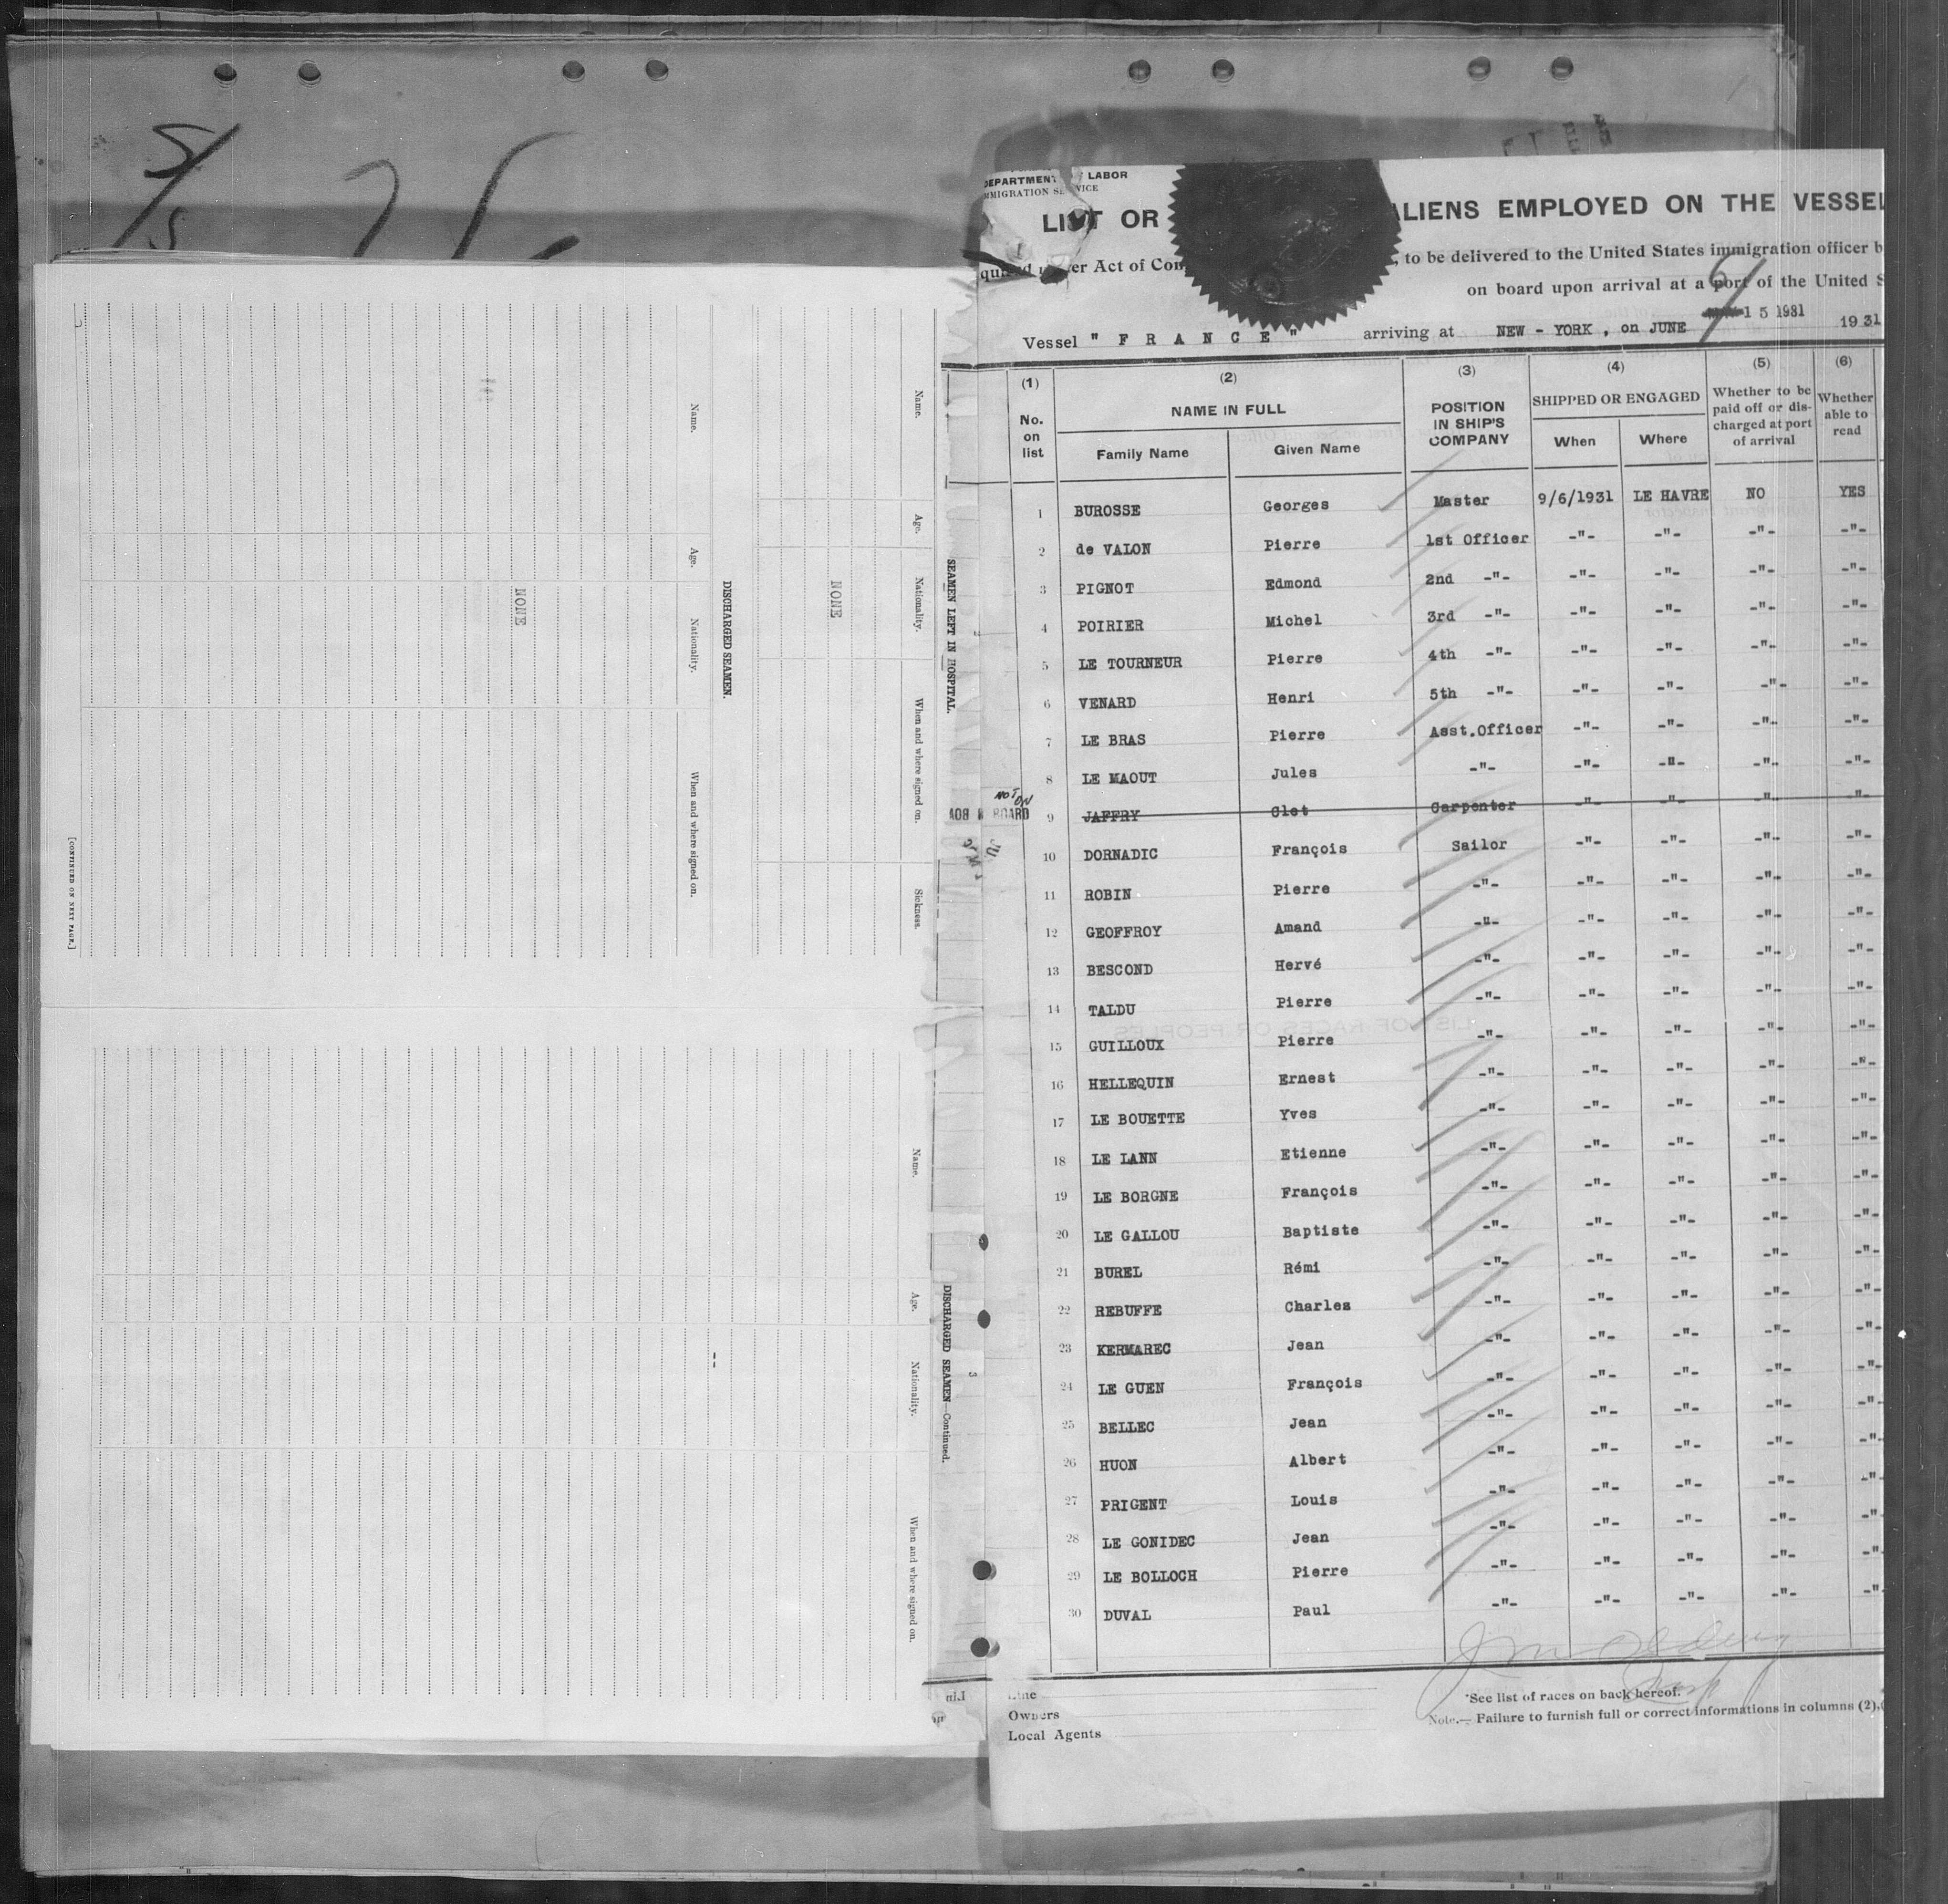 S/S
DISCHARGED SEAMEN.
Name.
Age.
Nationality.
When and where signed on.
NONE
[CONTINUED ON NEXT PAGE.]
SEAMEN LEFT IN HOSPITAL.
Name.
Age.
Nationality.
When and where signed on.
Sickness.
NONE
DISCHARGED SEAMEN—Continued.
Name.
Age.
Nationality.
When and where signed on.
3
DEPARTMENT OF LABOR
IMMIGRATION SERVICE
LIST OR ALIENS EMPLOYED ON THE VESSEL
under Act of Con , to be delivered to the United States immigration officer b
on board upon arrival at a port of the United S
Vessel " F R A N C E " arriving at NEW - YORK , on JUNE 15 1931 1931
(1) (2) (3) (4) (5) (6)
No. on list NAME IN FULL POSITION IN SHIP'S COMPANY SHIPPED OR ENGAGED Whether to be paid off or discharged at port of arrival Whether able to read
Family Name Given Name When Where
1 BUROSSE Georges Master 9/6/1931 LE HAVRE NO YES
2 de VALON Pierre 1st Officer -"- -"- -"- -"-
3 PIGNOT Edmond 2nd -"- -"- -"- -"- -"-
4 POIRIER Michel 3rd -"- -"- -"- -"- -"-
5 LE TOURNEUR Pierre 4th -"- -"- -"- -"- -"-
6 VENARD Henri 5th -"- -"- -"- -"- -"-
7 LE BRAS Pierre Asst.Officer -"- -"- -"- -"-
8 LE MAOUT Jules -"- -"- -"- -"- -"-
NOT ON BOARD
9 JAFFRY Clet Carpenter -"- -"- -"- -"-
10 DORNADIC François Sailor -"- -"- -"- -"-
11 ROBIN Pierre -"- -"- -"- -"- -"-
12 GEOFFROY Amand -"- -"- -"- -"- -"-
13 BESCOND Hervé -"- -"- -"- -"- -"-
14 TALDU Pierre -"- -"- -"- -"- -"-
15 GUILLOUX Pierre -"- -"- -"- -"- -"-
16 HELLEQUIN Ernest -"- -"- -"- -"- -"-
17 LE BOUETTE Yves -"- -"- -"- -"- -"-
18 LE LANN Etienne -"- -"- -"- -"- -"-
19 LE BORGNE François -"- -"- -"- -"- -"-
20 LE GALLOU Baptiste -"- -"- -"- -"- -"-
21 BUREL Rémi -"- -"- -"- -"- -"-
22 REBUFFE Charles -"- -"- -"- -"- -"-
23 KERMAREC Jean -"- -"- -"- -"- -"-
24 LE GUEN François -"- -"- -"- -"- -"-
25 BELLEC Jean -"- -"- -"- -"- -"-
26 HUON Albert -"- -"- -"- -"- -"-
27 PRIGENT Louis -"- -"- -"- -"- -"-
28 LE GONIDEC Jean -"- -"- -"- -"- -"-
29 LE BOLLOCH Pierre -"- -"- -"- -"- -"-
30 DUVAL Paul -"- -"- -"- -"- -"-
Line
Owners
Local Agents
*See list of races on back hereof.
Note.— Failure to furnish full or correct informations in columns (2),